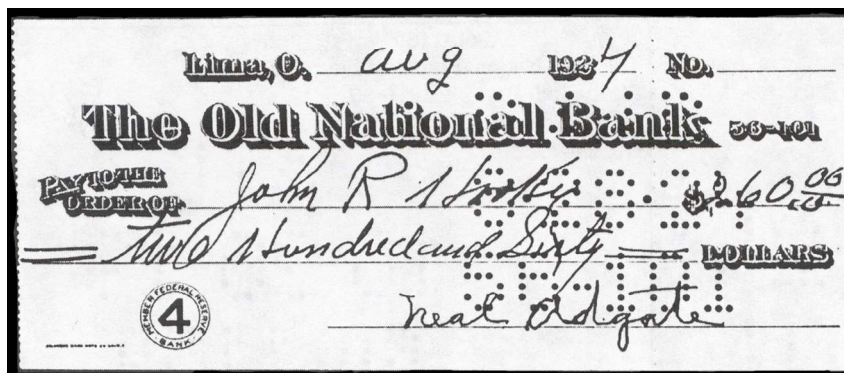 Lima, O. Aug 1924 No.
The Old National Bank 56-101
PAY TO THE ORDER OF John R $260.00
Two Hundred and Sixty DOLLARS
MEMBER FEDERAL RESERVE BANK 4
Neal Adgate